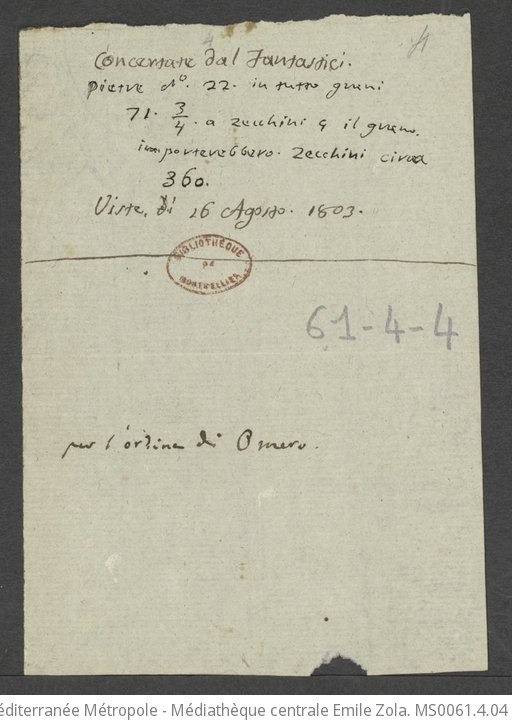 Concertate dal Fantastici.
pietre No. 22. in tutto grani
71. 3/4. a zecchini 5 il grano.
importerebbero. Zecchini circa
360.
Viste, di 26 Agosto. 1803.
BIBLIOTHÈQUE
DE
MONTPELLIER
61-4-4
per l'ordine di Omero.
éditerranée Métropole - Médiathèque centrale Emile Zola. MS0061.4.04